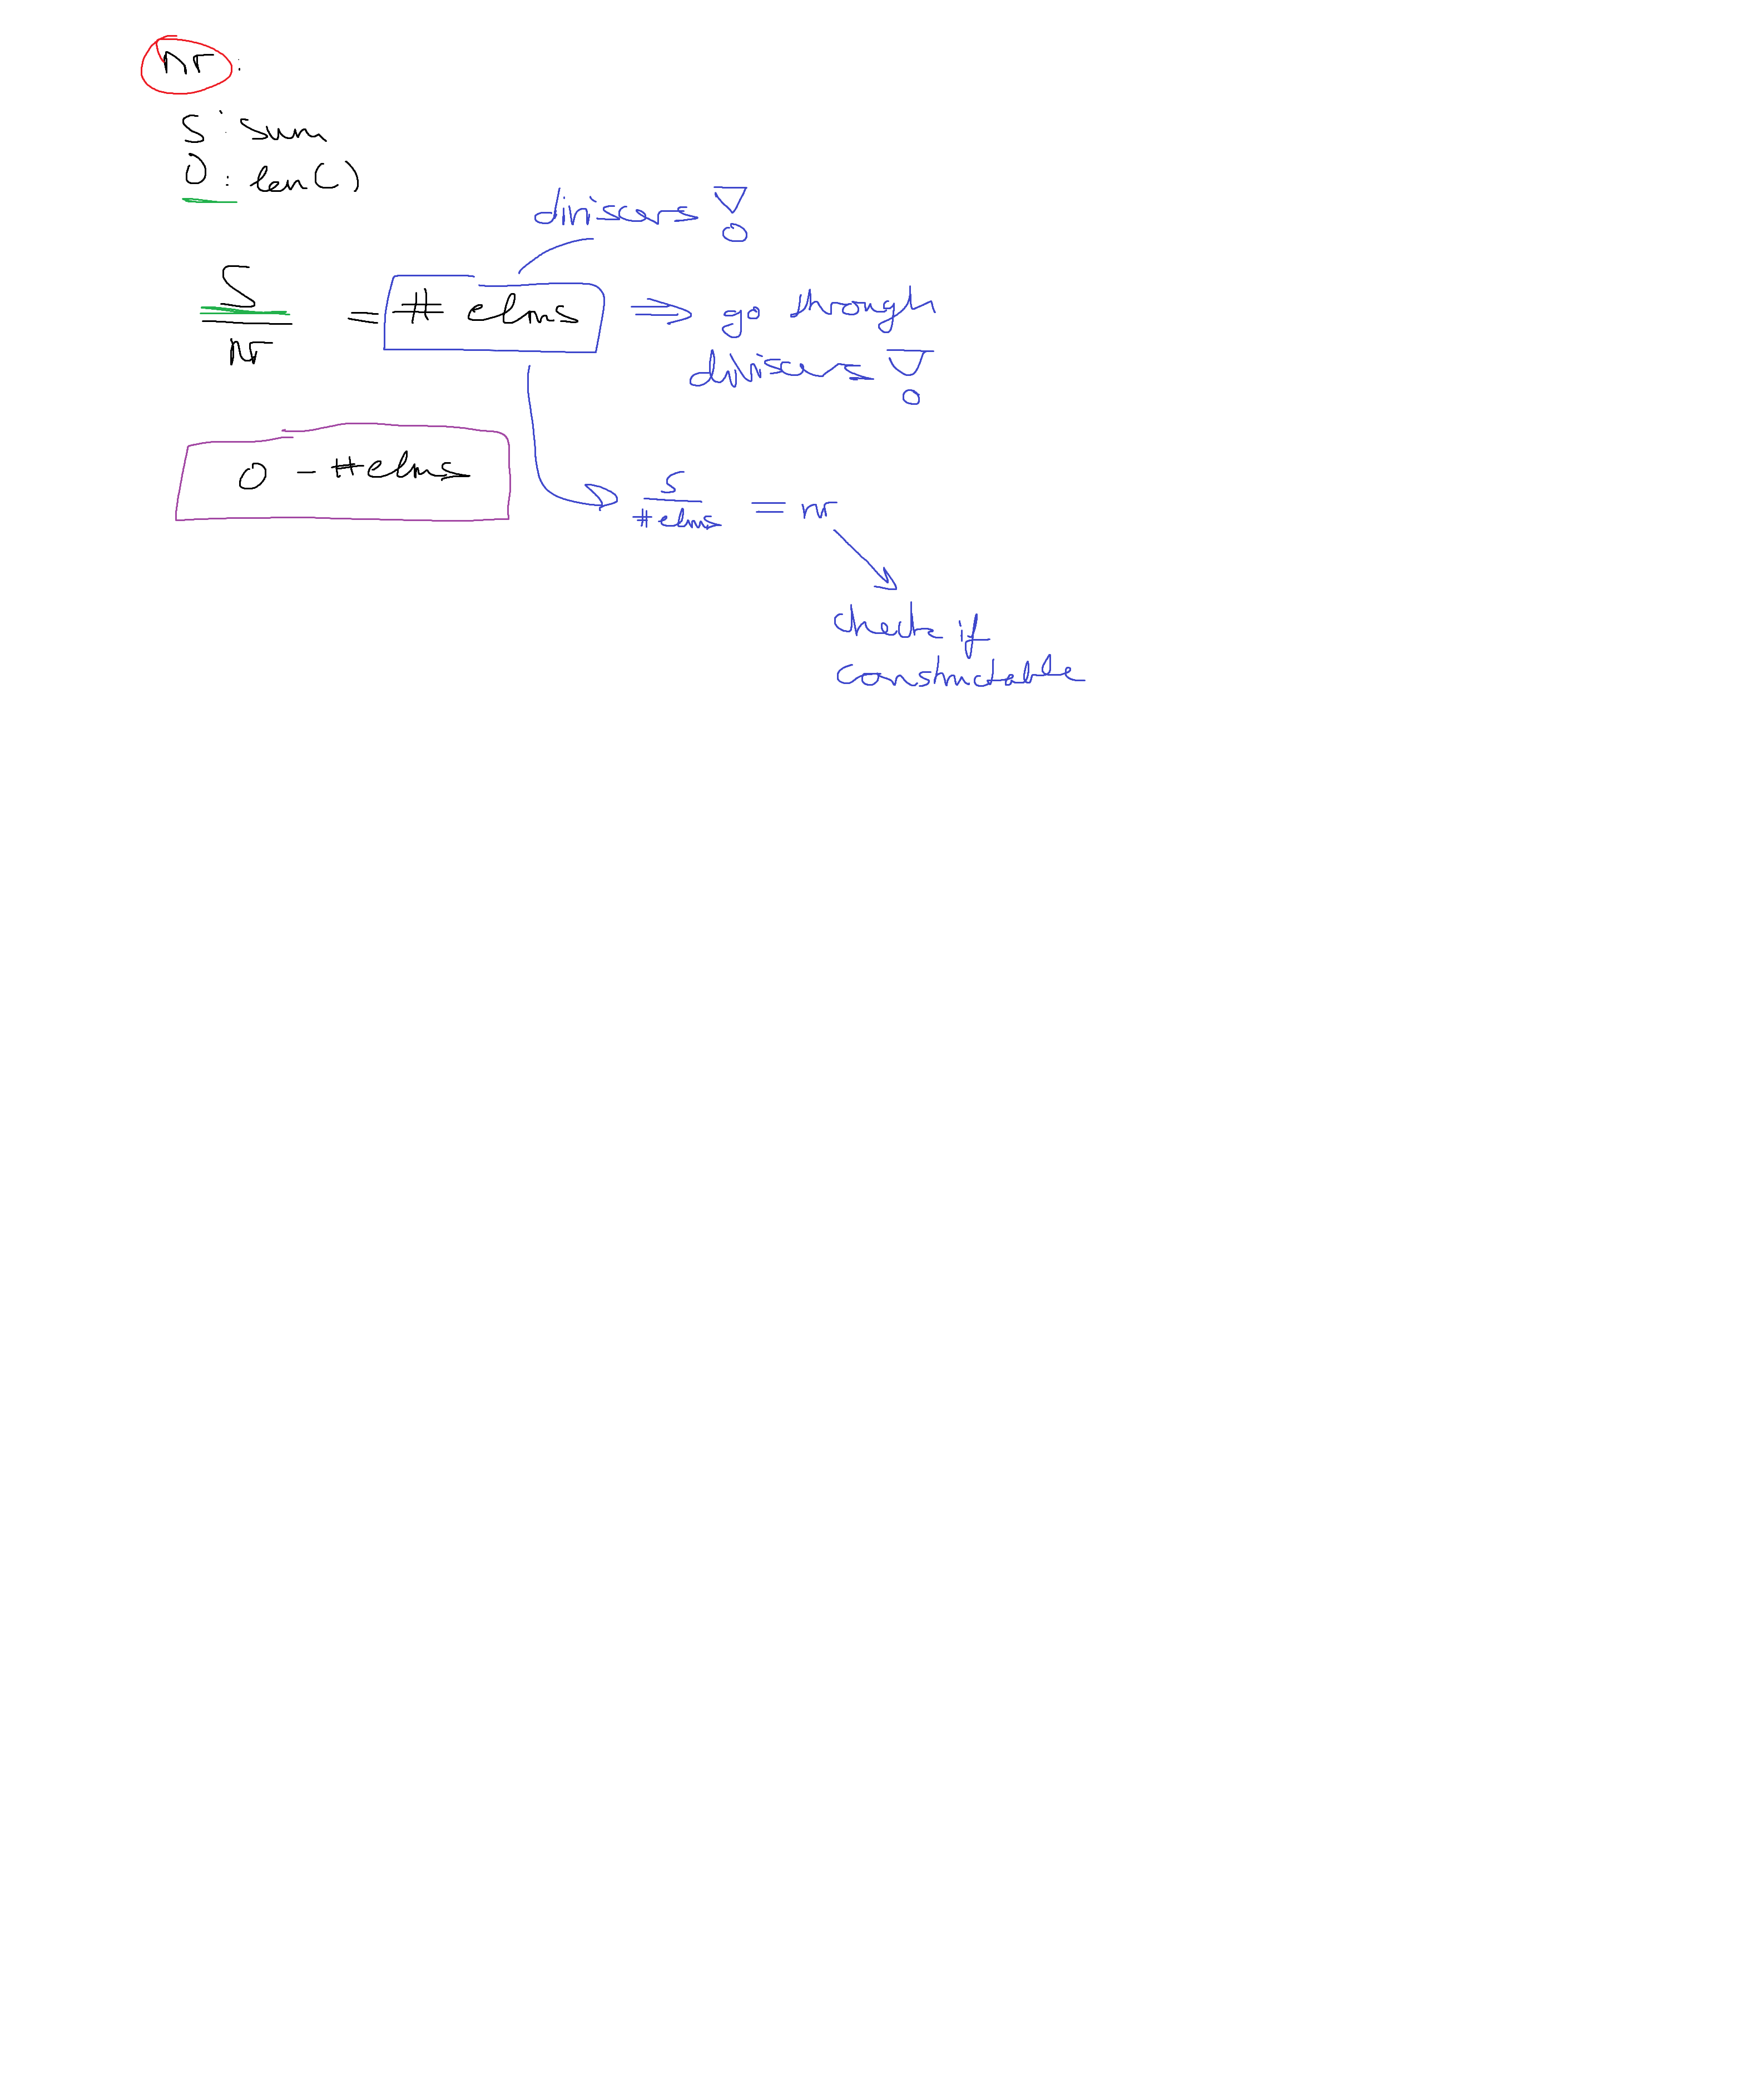 nr:
S: sum
O: len()
divisors !
S / nr = # elms ⇒ go through
divisors !
O - #elms
S / #elms = nr
check if
constructable